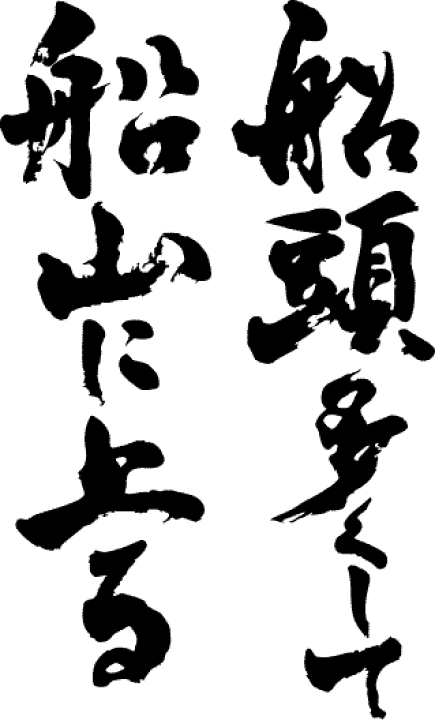 船頭多くして
船山に上る